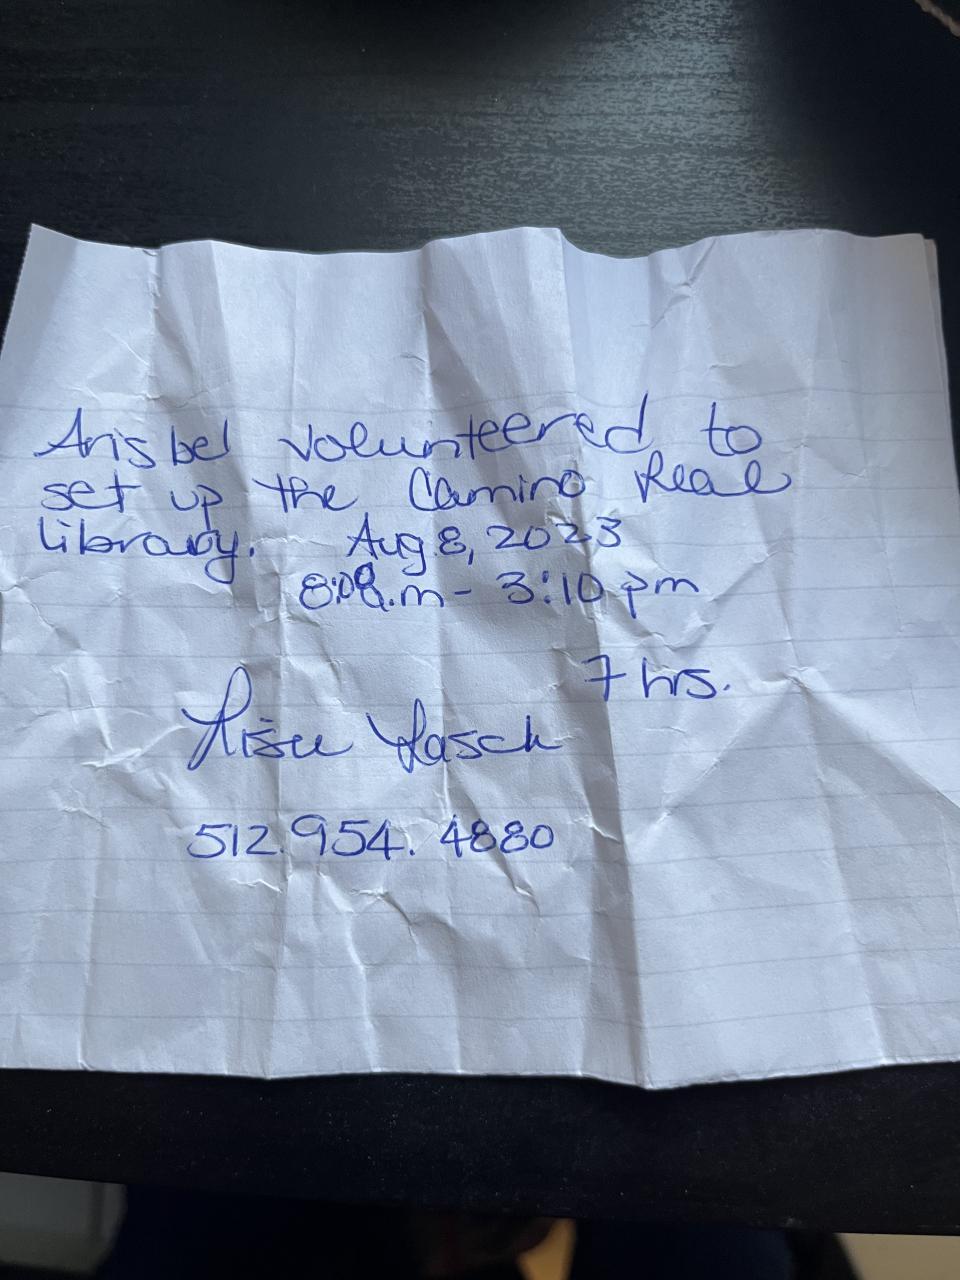 Arisbel volunteered to
set up the Camino Real
library. Aug 8, 2023
8:00a.m - 3:10 pm
7 hrs.
512.954.4880